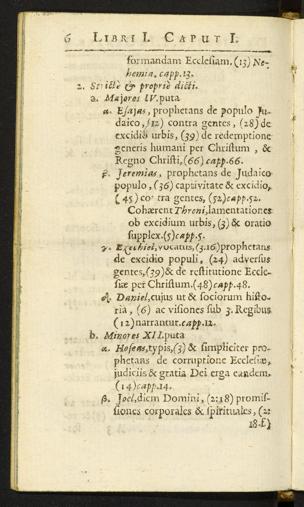 6 LIBRI I. CAPUT I.
formandam Ecclesiam. (13) Ne-
hemia. capp. 13.
2. Strictè & propriè dicti.
a. Majores IV. puta
α. Esajas, prophetans de populo Ju-
daico, (12) contra gentes, (28) de
excidio urbis, (39) de redemptione
generis humani per Christum, &
Regno Christi, (66) capp. 66.
β. Jeremias, prophetans de Judaico
populo, (36) captivitate & excidio,
(45) contra gentes, (52) capp. 52.
Cohærent Threni, lamentationes
ob excidium urbis, (3) & oratio
supplex. (5) capp. 5.
γ. Ezechiel, vocatus, (3.16) prophetans
de excidio populi, (24) adversus
gentes, (39) & de restitutione Eccle-
siæ per Christum. (48) capp. 48.
δ. Daniel, cujus ut & sociorum histo-
ria, (6) ac visiones sub 3. Regibus
(12) narrantur. capp. 12.
b. Minores XII. puta
α. Hoseas, typis, (3) & simpliciter pro-
phetans de corruptione Ecclesiæ,
judiciis & gratia Dei erga eandem.
(14) capp. 14.
β. Joel, diem Domini, (2:18) promis-
siones corporales & spirituales, (2:
18-f.)